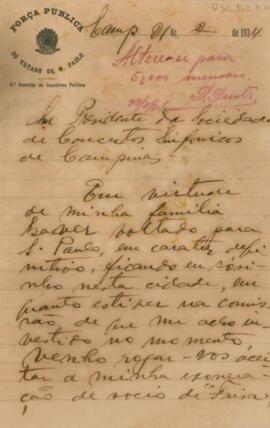 FORÇA PUBLICA
DO ESTADO DE S. PAULO
Camp. 21 de 2 de 1934
Altere-se para
5,000 mensaes.
Snr Presidente da Sociedade
de Concertos Sinfonicos
de Campinas.
Em virtude
de minha familia
haver voltado para
S. Paulo, em carater defi-
nitivo, ficando eu sósi-
nho nesta cidade, em
quanto estiver na comis-
são de que me acho in-
vestido no momento,
venho rogar-vos acei-
tar a minha exonera-
ção de socio de "Frisa",